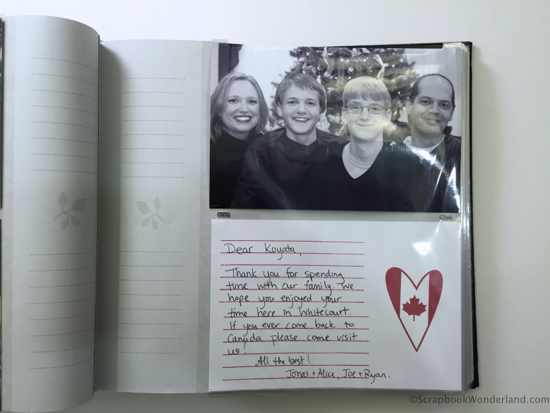 Dear Koyata,
Thank you for spending
time with our family. We
hope you enjoyed your
time here in Whitecourt.
If you ever come back to
Canada please come visit
us.
All the best!
Jonas + Alice, Joe + Ryan.
©ScrapbookWonderland.com